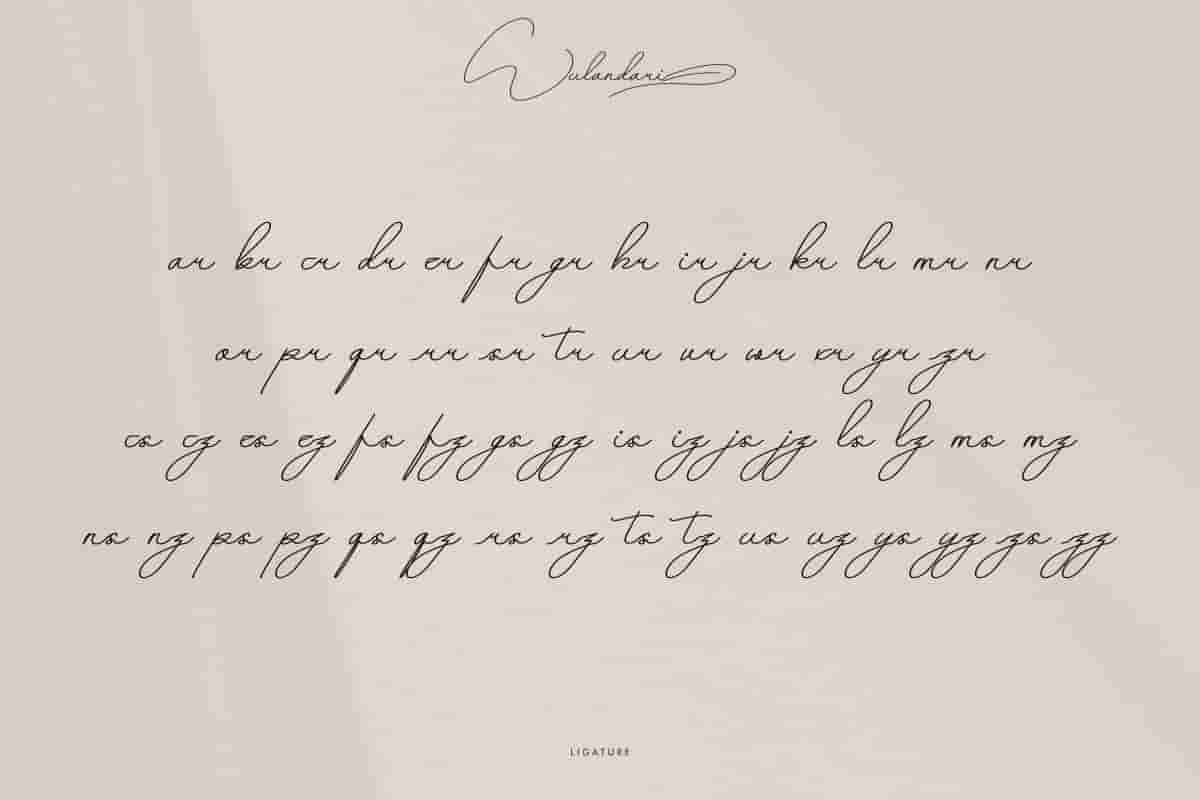 Wulandari
ar br cr dr er fr gr hr ir jr kr lr mr nr
or pr qr rr sr tr ur vr wr xr yr zr
cs cz es ez fs fz gs gz is iz js jz ls lz ms mz
ns nz ps pz qs qz rs rz ts tz us uz ys yz zs zz
LIGATURE